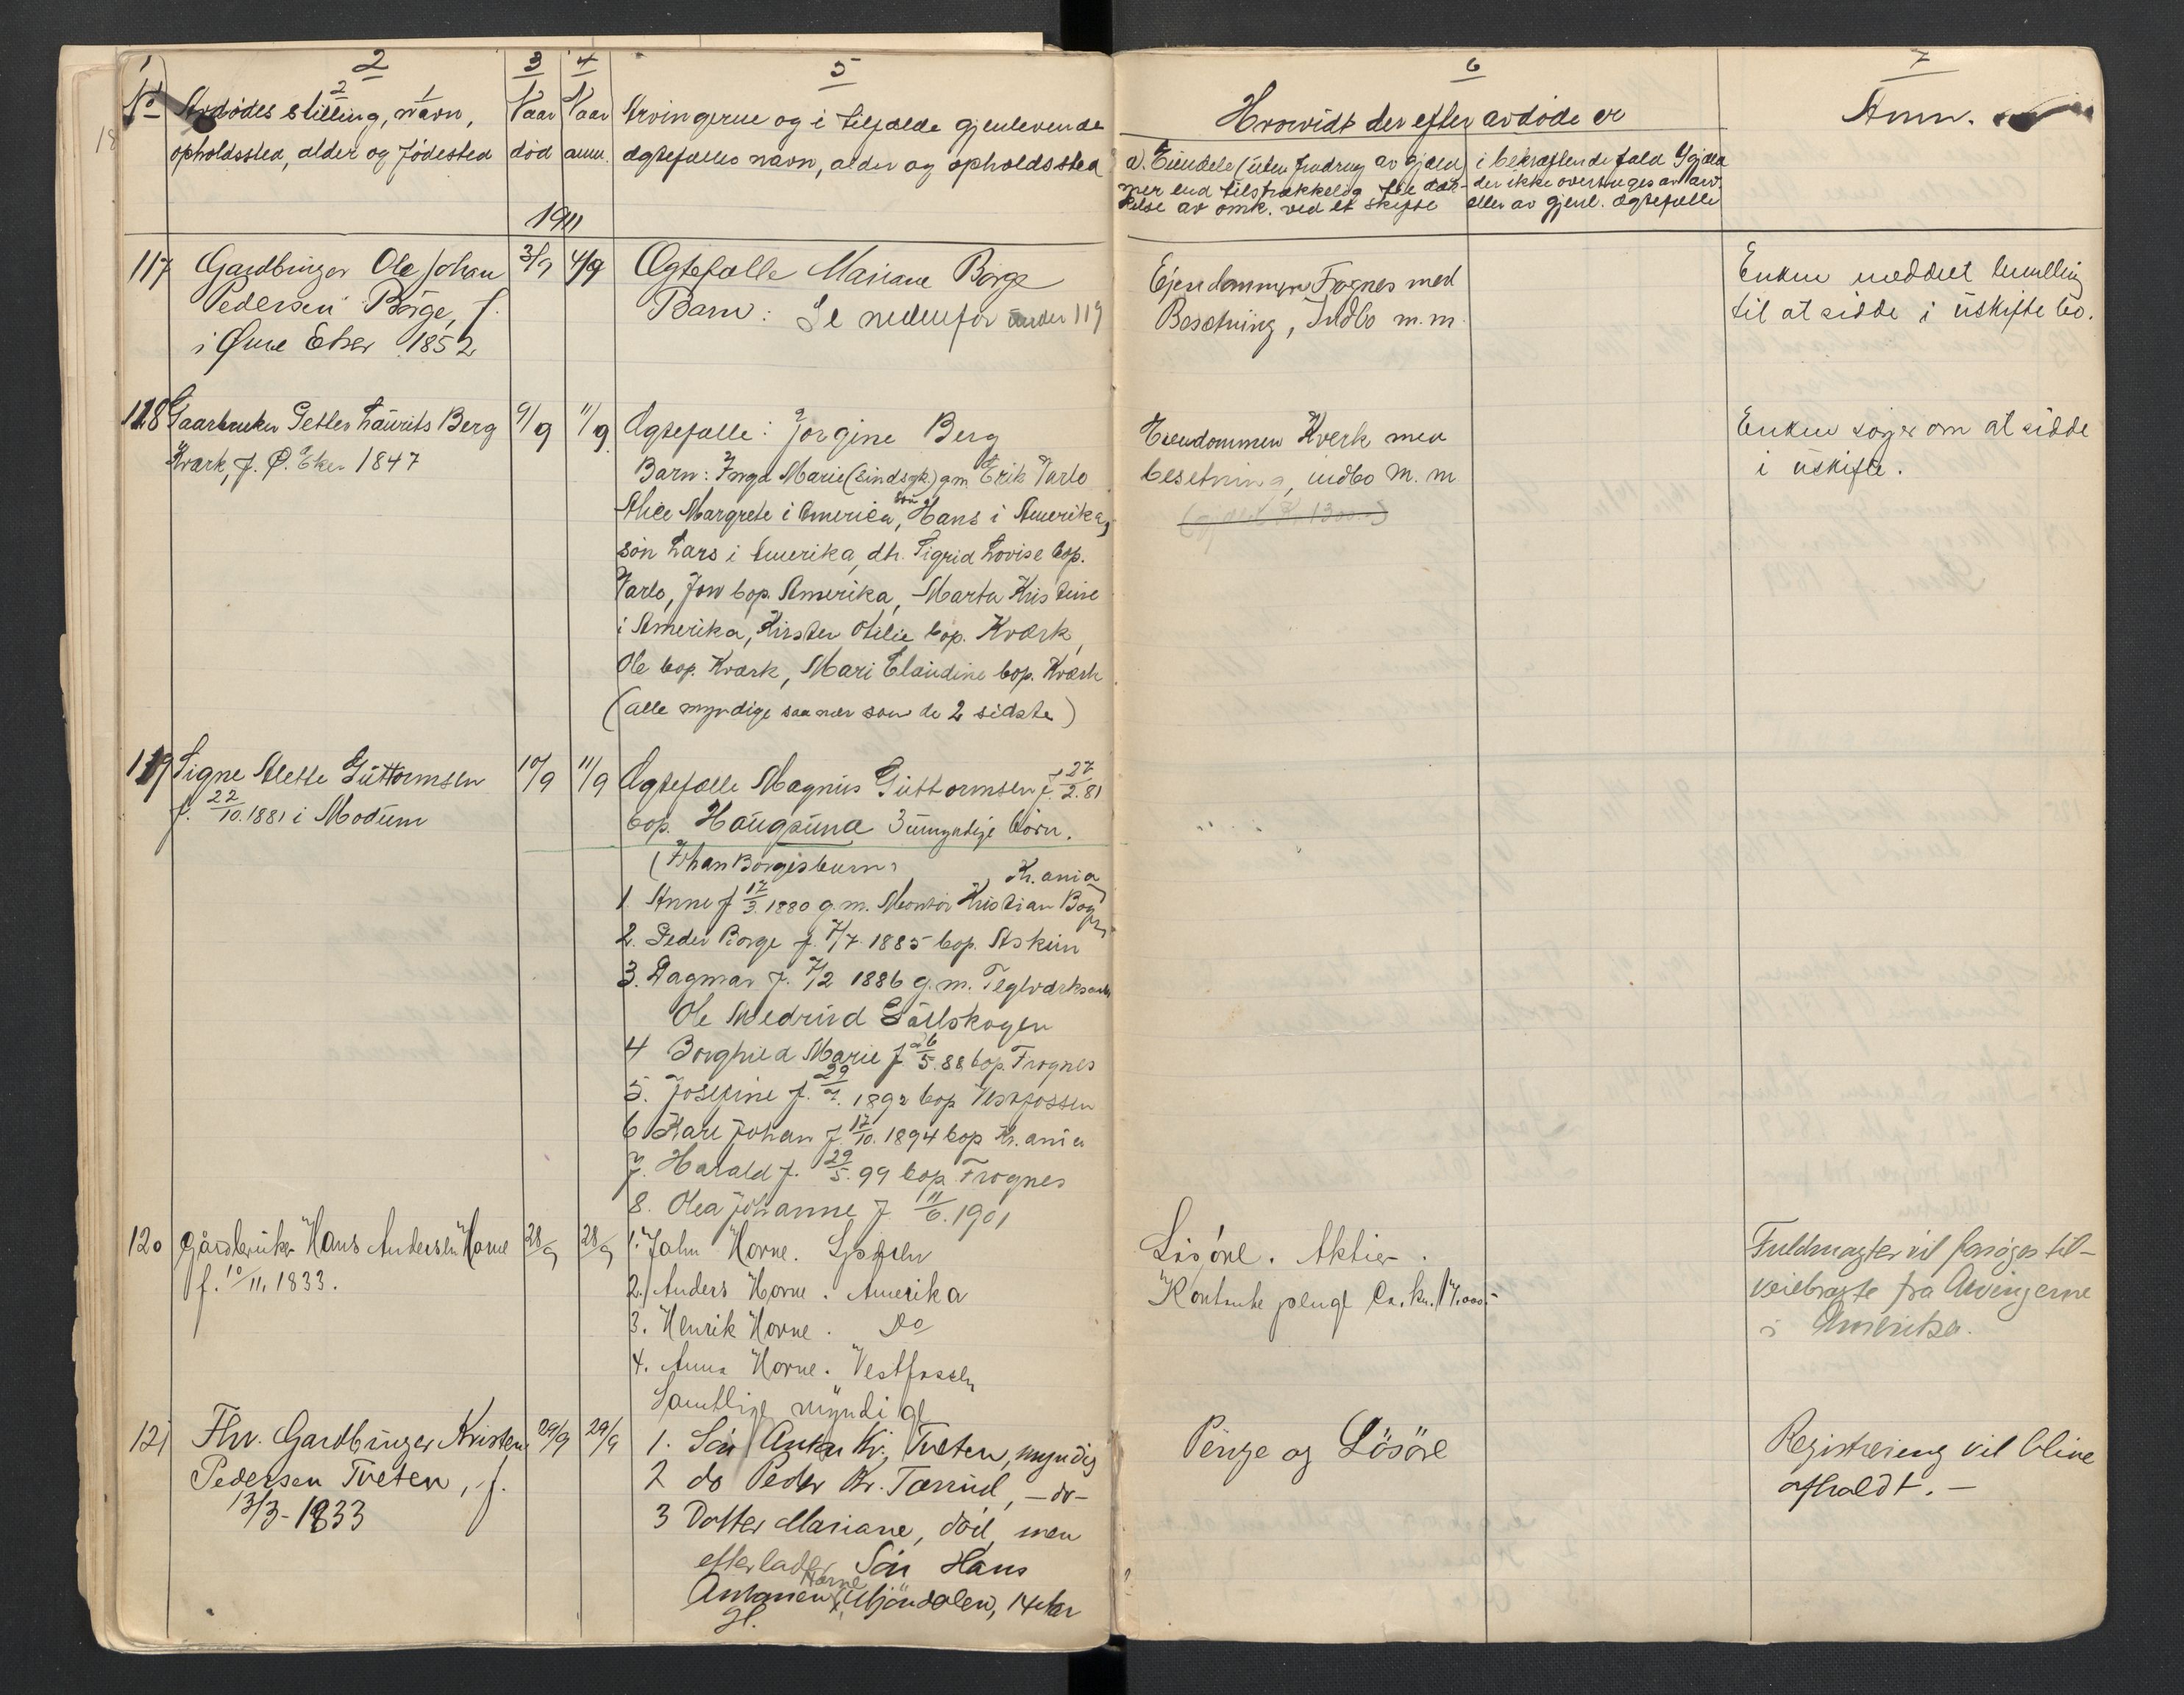 1
2
3
4
5
No
Avdødes stilling, navn,
opholdssted, alder og fødested
Naar
død
Naar
anm.
Arvingerne og i tilfælde gjenlevende
ægtefælles navn, alder og opholdssted
1911
117
Gardbruger Ole Johan
Pedersen Börge, f.
i Øvre Eker 1852
3/9
4/9
Ægtefælle Mariane Borge
Barn: Se nedenfor under 119
118
Gaarbruker Petter Laurits Berg
Kværk, f. Ø. Eker 1847
9/9
11/9
Ægtefælle: Jørgine Berg
Barn: Inga Marie (sindsyk) g.m. Erik Varlo
Alice Margrete i America, søn Hans i Amerika,
søn Lars i Amerika, dtr. Sigrid Lovise bop.
Varlo, Jon bop. Amerika, Marta Kristine
i Amerika, Kirsten Otilie bop. Kværk,
Ole bop. Kværk, Mari Claudine bop. Kværk
(alle myndige saa nær som de 2 sidste)
119
Signe Alette Guttormsen
f. 22/10. 1881 i Modum
10/9
11/9
Ægtefælle Magnus Guttormsen f. 27/2. 81
bop. Haugsund 3 umyndige børn.
(Johan Borges barn)
Kr.ania
1. Anne f 17/3. 1880 g.m. Montør Kristian
2. Peder Borge f. 7/7. 1885 bop. Askim
3. Dagmar f. 7/2 1886 g.m. Teglværksarb.
Ole Medrud
4 Borghild Marie f 26/5. 88 bop. Frognes
5. Josefine f. 1892 bop Vestfossen
6 Karl Johan f 17/10. 1894 bop Kr.ania
7. Harald f. 29/5. 99 bop Frognes
8. Olea Johanne f 11/6. 1901
120
Gårdbruker Hans Andersen Horne
f. 10/11. 1833.
28/9
28/9
1. John Horne.
2. Anders Horne. Amerika
3. Henrik Horne. Do
4. Anna Horne. Vestfossen
Samtlige myndige
121
Fhv. Gardbruger Kristen
Pedersen Tveten, f.
13/3-1833
29/9
29/9
1. Søn Anton Kr. Tveten, myndig
2 do Peder Kr. Tærud, -do-
3 Dotter Mariane, död, men
efterlader Sön Hans
Antonsen Horne, Mjöndalen, 14 Aar
gl.
6
7
Hvorvidt der efter avdøde er
Anm.
a). Eiendele (uten fradrag av gjæld)
mer end tilstrækkelig til dæk-
kelse av omk. ved et skifte
i bekræftende fald b) gjæld
der ikke overtages av arv.
eller av gjenl. ægtefælle
Ejendommen Frognes med
Besætning, Indbo m.m.
Enken meddelt bevilling
til at sidde i uskiftet bo.
Eiendommen Kverk med
besetning, indbo m.m
Enken søger om at sidde
i uskifte.
Løsøre. Aktier.
Kontante penge Ca. kr. 17.000.-
Fuldmagter vil forsøges til-
veiebragte fra Arvingerne
i Amerika.
Penge og Lösöre
Registrering vil blive
afholdt.-